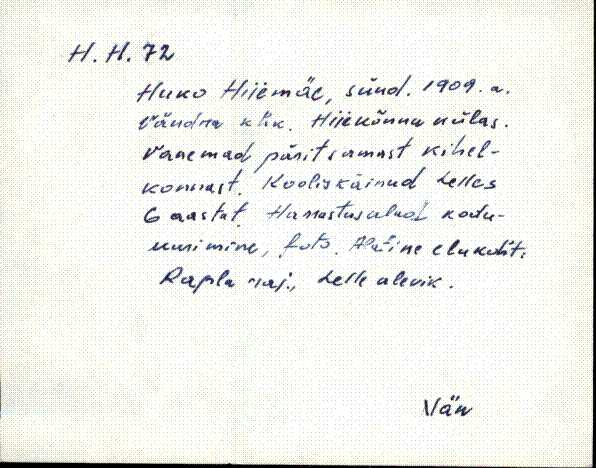 H. H. 72
Huko Hiiemäe, sünd. 1909. a.
Vändra khk. Hiiekõnnu külas.
Vanemad pärit samast kihel-
konnast. Kooliskäinud Lelles
6 aastat. Harrastusalad kodu-
uurimine, foto. Alatine elukoht:
Rapla raj., Lelle alevik.
Vän